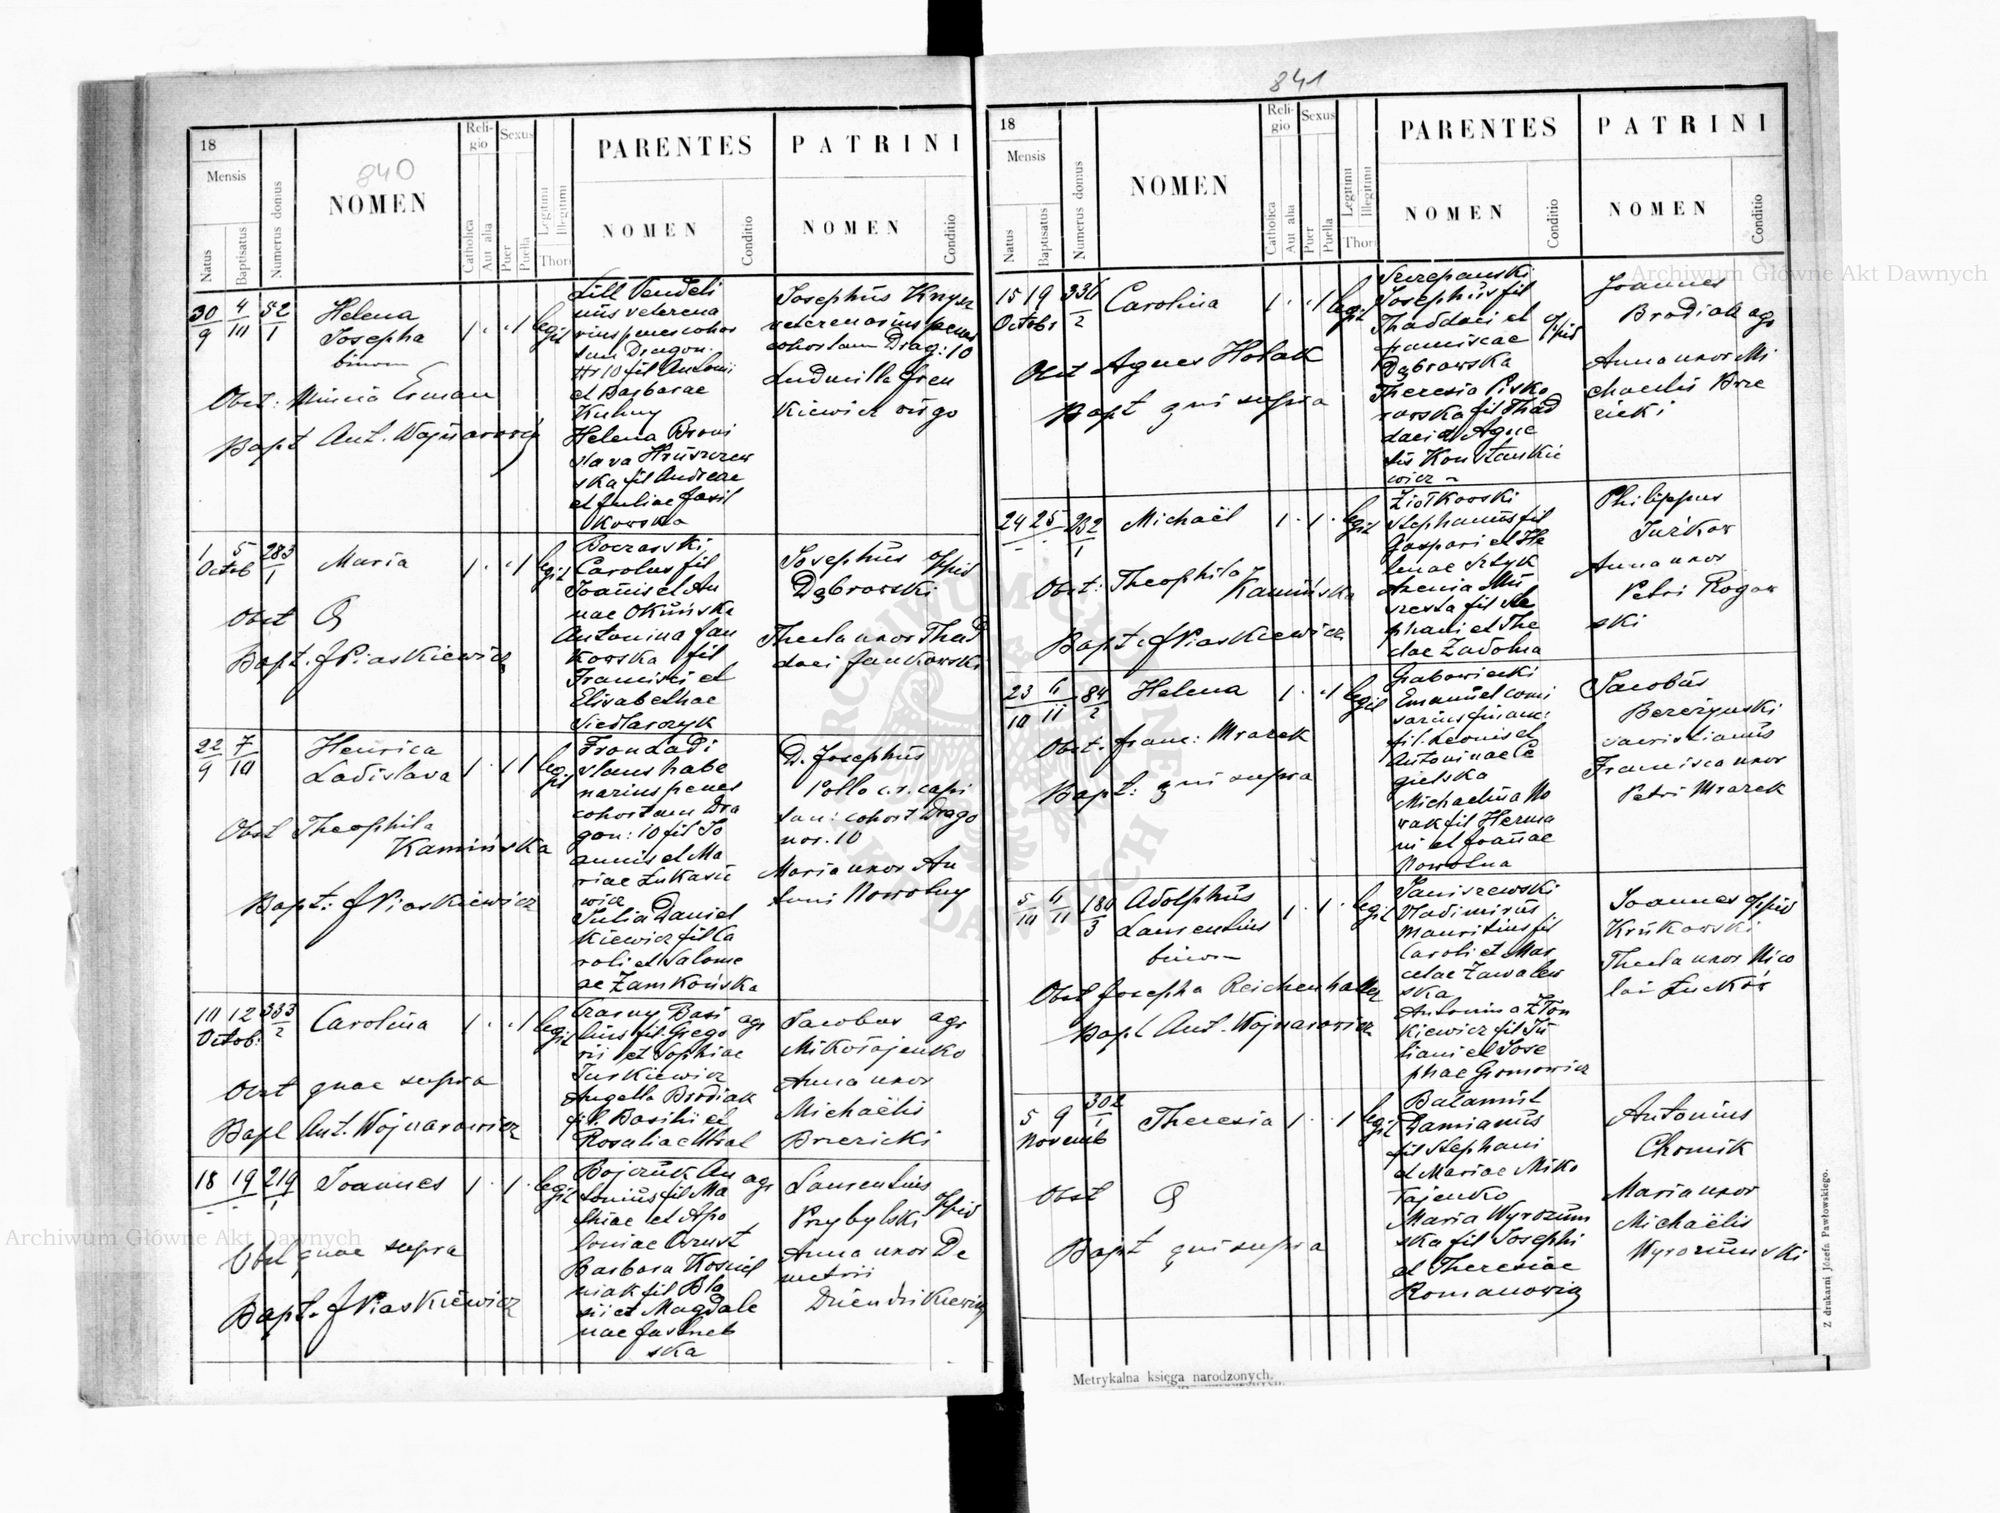 840
18
Mensis
Natus
Baptisatus
Numerus domus
NOMEN
Religio
Catholica
Aut alia
Sexus
Puer
Puella
Legitimi
Illegitimi
Thori
PARENTES
NOMEN
Conditio
PATRINI
NOMEN
Conditio
30/9 4/10 52/1
Helena
Josepha
binom
1 . . 1 legit
Obst: Erman
Bapt Ant. Wojnarowicz
Lill Vendeli
nus veterena
rius penes cohor
tem Dragon.
Nr 10 fil Antonii
et Barbarae
Kuhny
Helena Broni
slava Hruszczew
ska fil Andreae
et Juliae Jasil
kowska
Josephus
veterenarius penes
cohortem Drag: 10
Ludmilla Fren
kiewicz virgo
1 5 283/1
Octob
Maria
1 . . 1 legit
Obst
Bapt. J Piaskiewicz
Boczarski
Carolus fil
Joannis et An
nae Okuńska
Antonina Jan
kowska fil
Francisci et
Elisabethae
Siedlarczyk
Josephus oppid
Dąbrowski
Thecla uxor Thad
daei Jankowski
22/9 7/10
Henrica
Ladislava
1 . . 1 legit
Obst Theophila
Kamińska
Bapt: J Piaskiewicz
Fron Ladi
slaus habe
narius penes
cohortem Dra
gon: 10 fil Jo
annis et Ma
riae Łukasie
wicz
Julia Daniel
kiewicz fil Ca
roli et Salome
ae Zamkońska
D. Josephus
Pollo c.r. capi
tan: cohort Drago
nor. 10
Maria uxor An
toni Nowotny
10 12 333/2
Octob.
Carolina
1 . . 1 legit
Obst quae supra
Bapt Ant. Wojnarowicz
Czarny Basi agr
lius fil Grego
rii et Sophiae
Juskiewicz
Angella Brodiak
fil. Basilii et
Rosaliae
Jacobus agr
Mikołajenko
Anna uxor
Michaëlis
Brzezicki
18 19 219/1
Joannes
1 . 1 . legit
Obst quae supra
Bapt. J Piaskiewicz
Bojczuk An agr
tonius fil Ma
thiae et Apo
loniae
Barbara
niak fil Bla
sii et Magdale
nae Jastrzeb
ska
Laurentius
Przybylski oppid
Anna uxor De
metrii
Dziendzikiewicz
841
18
Mensis
Natus
Baptisatus
Numerus domus
NOMEN
Religio
Catholica
Aut alia
Sexus
Puer
Puella
Legitimi
Illegitimi
Thori
PARENTES
NOMEN
Conditio
PATRINI
NOMEN
Conditio
15 19 336/2
Octobr
Carolina
1 . . 1 legit
Obst Agnes Holak
Bapt qui supra
Szczepanski
Josephus fil
Thaddaei et oppid
Franciscae
Dąbrowska
Theresia Pisko
rowska fil Thad
daei et Agne
tis Konstankie
wicz
Joannes
Brodiak agr
Anna uxor Mi
chaelis Brze
zicki
24 25 232/1
Michaël
1 . 1 . legit
Obst: Theophila
Kamińska
Bapt. J Piaskiewicz
Ziółkowski
Stephanus fil
Gaspari et He
lenae Sztyk
Axenia Mu
szesta fil Ste
phani et The
clae Zadolna
Philippus
Jurkow
Anna uxor
Petri Rogow
ski
23/10 6/11 84/2
Helena
1 . . 1 legit
Obst. Franc: Mrazek
Bapt: qui supra
Grabowiecki
Emanuel comi
sarius financ:
fil. Leonis et
Antoninae Ce
gielska
Michaelina No
wak fil Herma
ni et Joannae
Nowotna
Jacobus
Berezynski
sacristianus
Francisca uxor
Petri Mrazek
5/10 6/11 180/3
Adolphus
Laurentius
binom
1 . 1 . legit
Obst Josepha Reichenhalter
Bapt Ant. Wojnarowicz
Janiszewski
Vladimirus
Mauritius fil
Caroli et Mar
celae Zawalew
ska
Antonina Złon
kiewicz fil Ju
liani et Jose
phae Gromowicz
Joannes oppid
Krukowski
Thecla uxor Nico
lai Łuckór
5 9 302/1
Novemb
Theresia
1 . . 1 legit
Obst
Bapt qui supra
Bałamut
Damianus
fil Stephani
et Mariae Miko
łajenko
Maria Wyrozum
ska fil Josephi
et Theresiae
Romanowicz
Antonius
Chomik
Maria uxor
Michaëlis
Wyrozumski
Metrykalna księga narodzonych.
Z drukarni Józefa Pawłowskiego.
Archiwum Główne Akt Dawnych
Archiwum Główne Akt Dawnych
ARCHIWUM GŁÓWNE AKT DAWNYCH